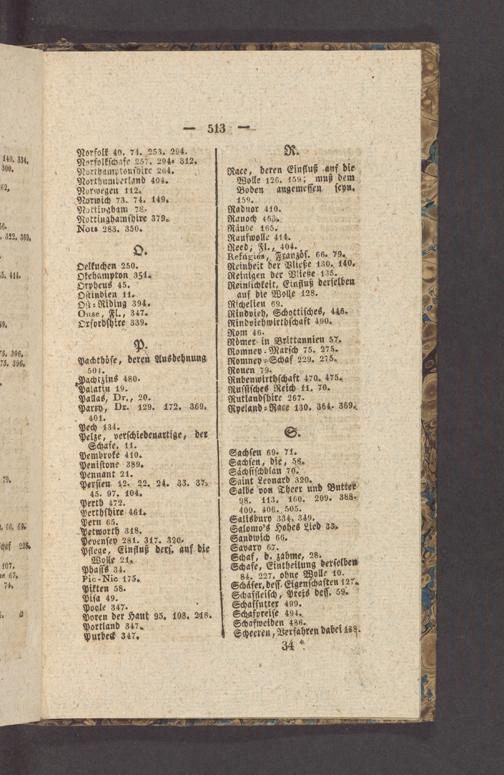 — 513 —
Norfolk 40. 74. 253. 294.
Norfolkschafe 257. 294. 312.
Northamptonshire 264.
Northumberland 404.
Norwegen 112.
Norwich 73. 74. 149.
Nottingham 78.
Nottinghamshire 379.
Nots 283. 350.
O.
Oelkuchen 250.
Okehampton 354.
Orpheus 45.
Ostindien 11.
Ost-Riding 394.
Ouse, Fl., 347.
Oxfordshire 339.
P.
Pachthöfe, deren Ausdehnung
504.
Pachtzins 480.
Palatin 19.
Pallas, Dr., 20.
Parry, Dr. 129. 172. 369.
401.
Pech 134.
Pelze, verschiedenartige, der
Schafe, 11.
Pembroke 410.
Penistone 389.
Pennant 21.
Persien 12. 22. 24. 33. 37.
45. 97. 104.
Perth 472.
Perthshire 461.
Peru 65.
Petworth 318.
Pevensey 281. 317. 320.
Pflege, Einfluß ders. auf die
Wolle 21.
Phasis 34.
Pic-Nic 175.
Pikten 58.
Pisa 49.
Poole 347.
Poren der Haut 95. 108. 218.
Portland 347.
Purbeck 347.
R.
Race, deren Einfluß auf die
Wolle 126. 159; muß dem
Boden angemessen seyn.
159.
Radnor 410.
Ranoch 463.
Räude 165.
Raufwolle 414.
Reed, Fl., 404.
Refugiés, Französ. 66. 79.
Reinheit der Vließe 130. 140.
Reinigen der Vließe 135.
Reinlichkeit, Einfluß derselben
auf die Wolle 128.
Richelieu 69.
Rindvieh, Schottisches, 446.
Rindviehwirthschaft 490.
Rom 46.
Römer in Brittannien 57.
Romney-Marsch 75. 275.
Romney-Schaf 229. 275.
Rouen 79.
Rübenwirthschaft 470. 475.
Russisches Reich 11. 70.
Rutlandshire 267.
Ryeland-Race 130. 364. 369.
S.
Sachsen 69. 71.
Sachsen, die, 58.
Sächsischblau 70.
Saint Leonard 320.
Salbe von Theer und Butter
98. 113. 160. 209. 388.
400. 406. 505.
Salisbury 334. 349.
Salomo's Hohes Lied 33.
Sandwich 66.
Savary 67.
Schaf, d. zahme, 28.
Schafe, Eintheilung derselben
84. 227. ohne Wolle 10.
Schäfer, dess. Eigenschaften 127.
Schaffleisch, Preis dess. 59.
Schaffutter 499.
Schafpreise 494.
Schafweiden 486.
Scheeren, Verfahren dabei 188.
34 *